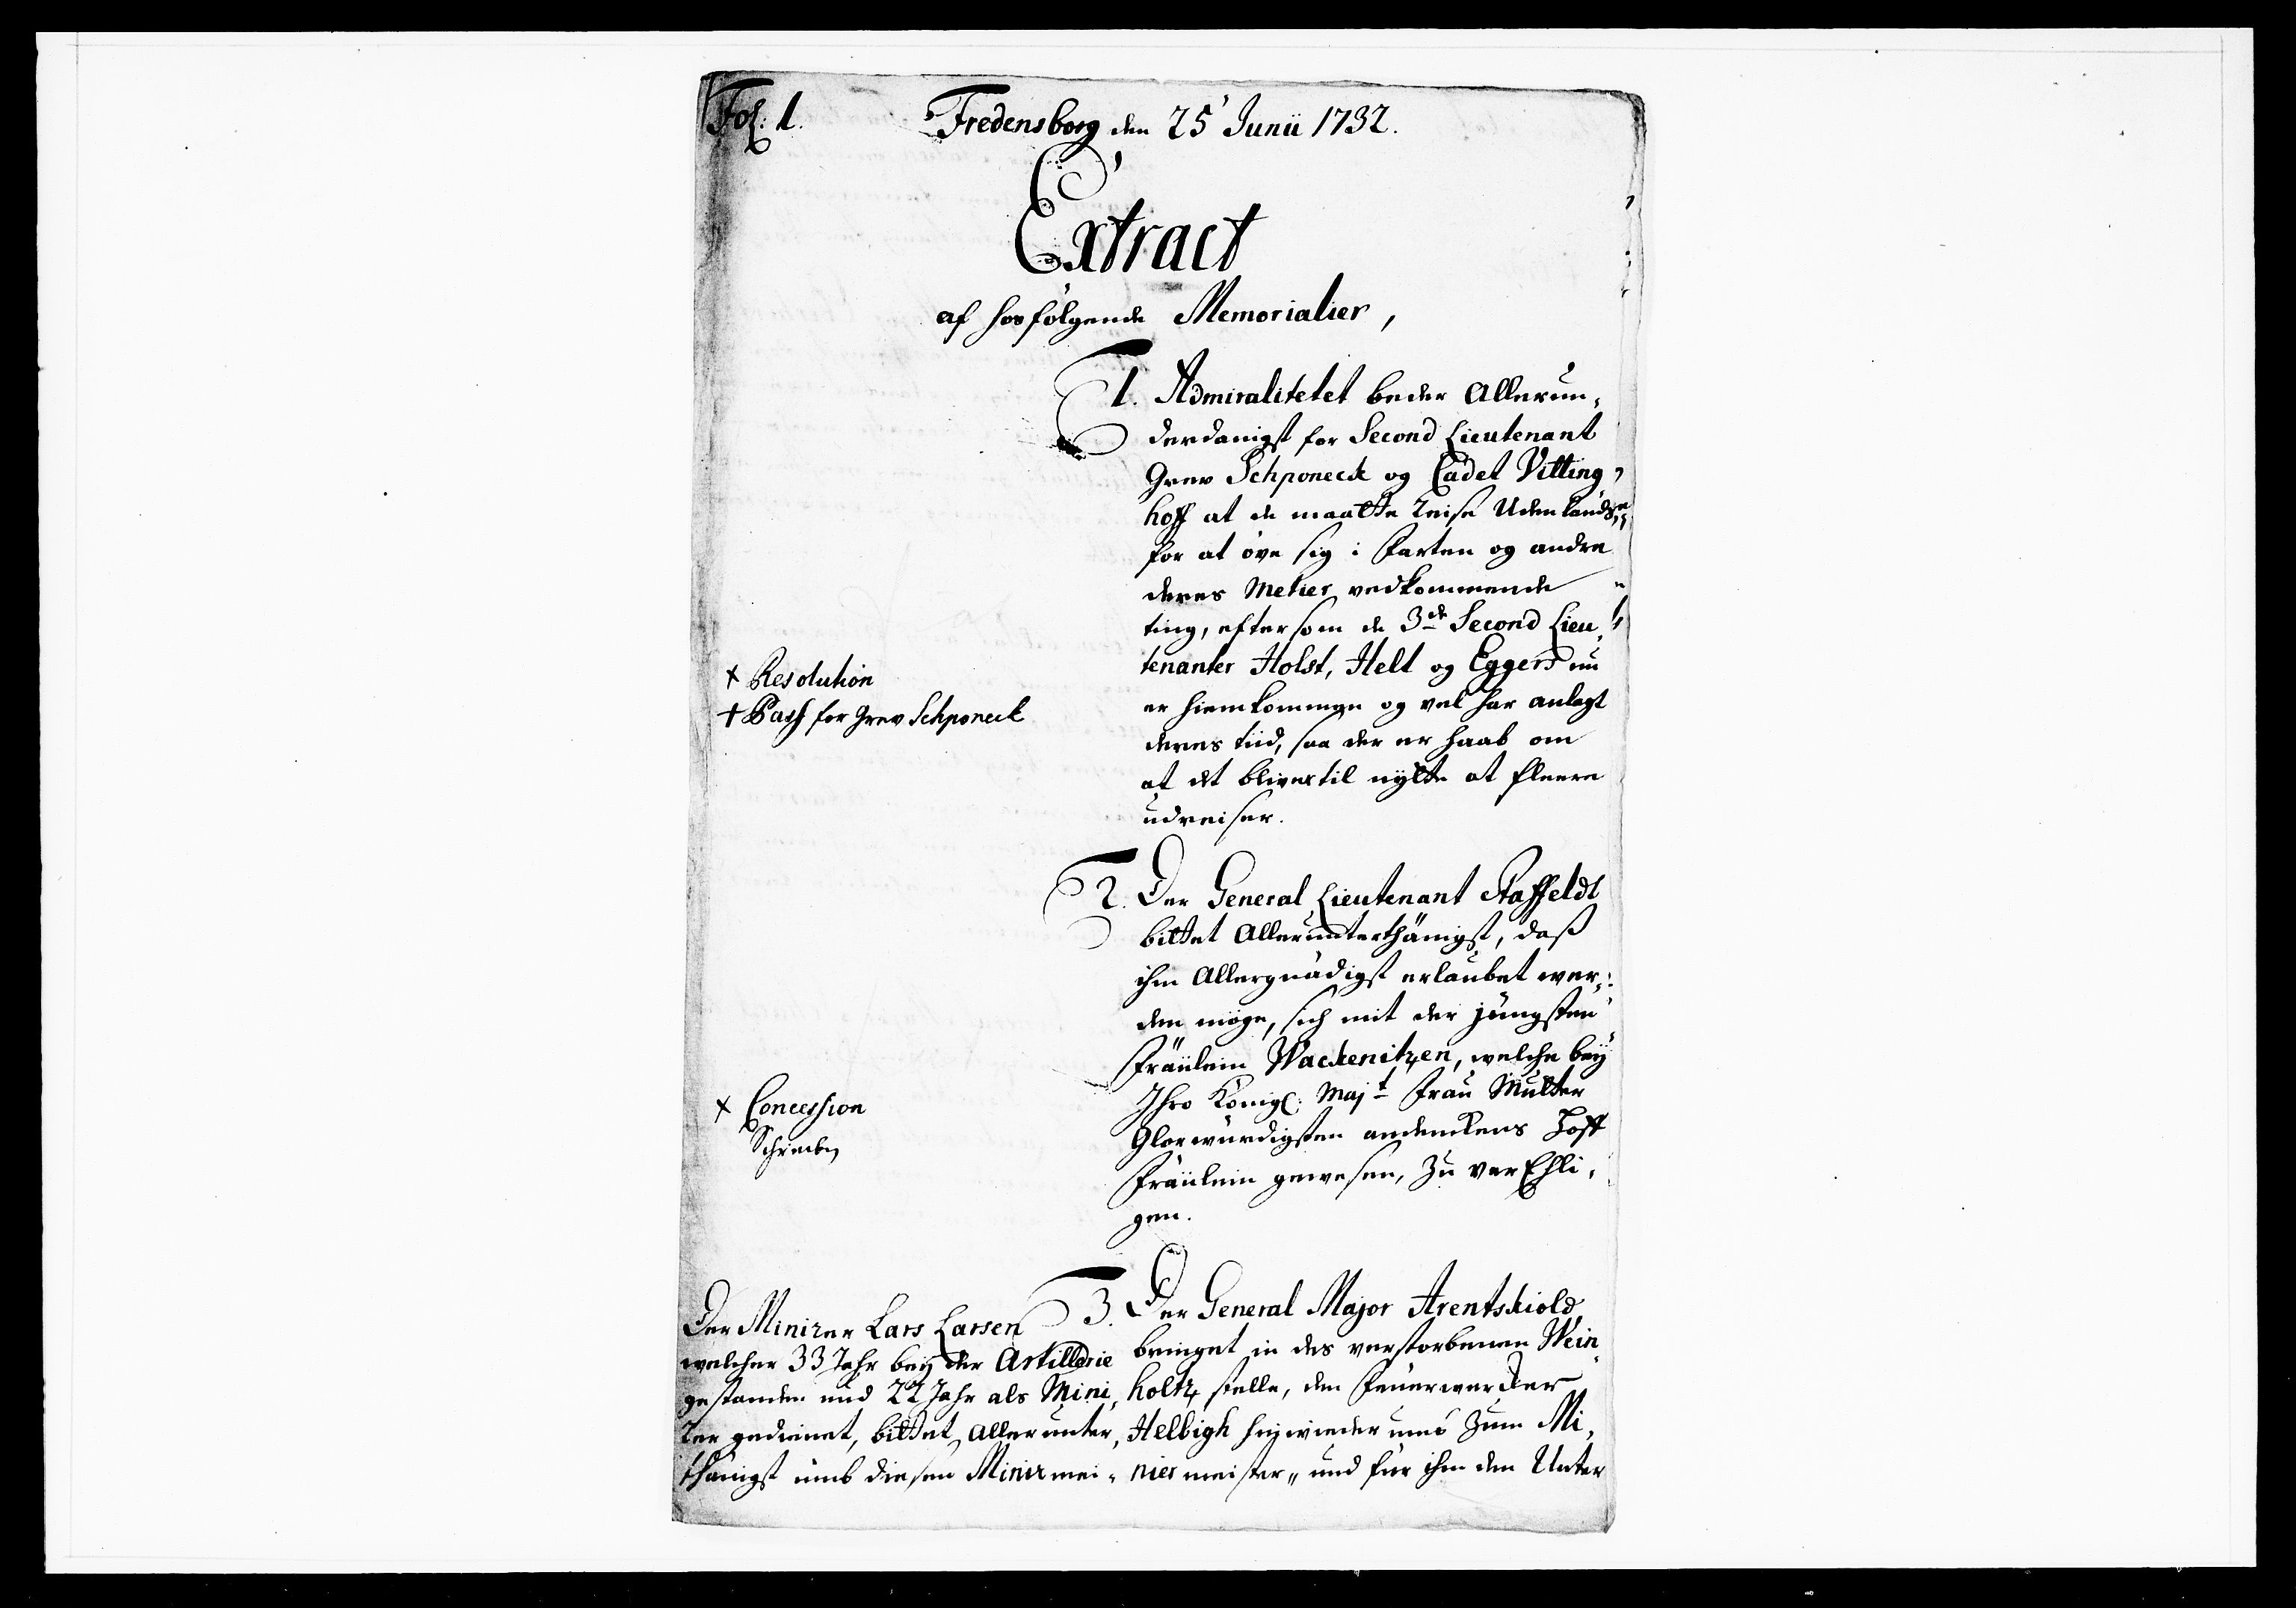 Fol: 1.
Fredensborg den 25 Junii 1732.
Extract
af hosfølgende Memorialier,
1. Admiralitetet beder Allerun,
derdanigst for Second Lieutenant
Grev Schponeck og Cadet Vitting,
hoff at de maatte reise Udenlands,
for at øve sig i Farten og andre
deres Metier vedkommende
ting, eftersom de 3de Second Lieu,
tenanter Holst, Helt og Eggers nu
er hiemkommen og vel har anlagt
deres tiid, saa der er haab om
at det bliver til nÿtte at fleere
udreiser.
x Resolution
+ Pass for Grev Schponeck
2. Der General Lieutenant Staffeldt
bittet Allerunterthänigst, daß
ihm Allergnädigst erlaubet wer,
den möge, sich mit der jüngsten
Fräulein Wackenitzen, welche beÿ
Ihro Königl: Majt Frau Mutter
Glorwürdigsten andenckens Hoff
Fräulein gewesen, zu verEhli,
gen.
x Concession
Schreiben
3. Der General Major Arentskiold,
bringet in des verstorbenen Wein,
holtz stelle, den Feuerwercker
Helbigk hinwieder umb zum Mi,
niermeister,, und für ihm den Unter
Der Minirer Lars Larsen
welcher 33 Jahr beÿ der Artillerie
gestanden und 22 Jahr als Mini,
rer gedienet, bittet, allerunter,
thänigst umb diesen Minirmei,